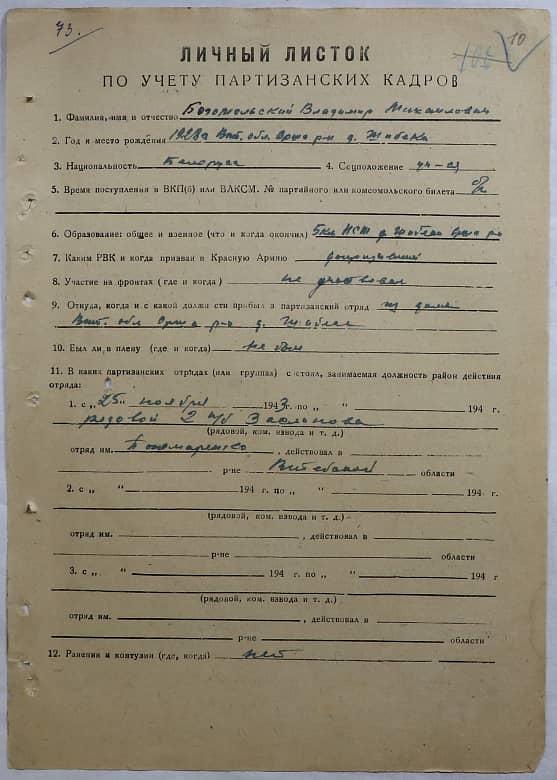 73.
10
ЛИЧНЫЙ ЛИСТОК
ПО УЧЕТУ ПАРТИЗАНСКИХ КАДРОВ
1. Фамилия, имя и отчество Владимир Михайлович
2. Год и место рождения 1928 Вит. обл. д.
3. Национальность Белорус 4. Соцположение уч-ся
5. Время поступления в ВКП(б) или ВЛКСМ. № партийного или комсомольского билета б/п
6. Образование: общее и военное (что и когда окончил) 5кл НСШ д.
7. Каким РВК и когда призван в Красную Армию
8. Участие на фронтах (где и когда) не участвовал
9. Откуда, когда и с какой должности прибыл в партизанский отряд из дома
Вит. обл р-н д.
10. Был ли в плену (где и когда) не был
11. В каких партизанских отрядах (или группах) состоял, занимаемая должность район действия
отряда:
1. с „25" ноября 1943г. по „ " 194 г.
рядовой 2 п/б Заслонова
(рядовой, ком. взвода и т. д.)
отряд им. Пономаренко, действовал в
р-не Витебской области
2. с „ " 194 г. по „ " 194 г.
(рядовой, ком. взвода и т. д.)
отряд им. , действовал в
р-не области
3. с „ " 194 г. по „ " 194 г
(рядовой, ком. взвода и т. д.)
отряд им. , действовал в
р-не области
12. Ранения и контузии (где, когда) нет